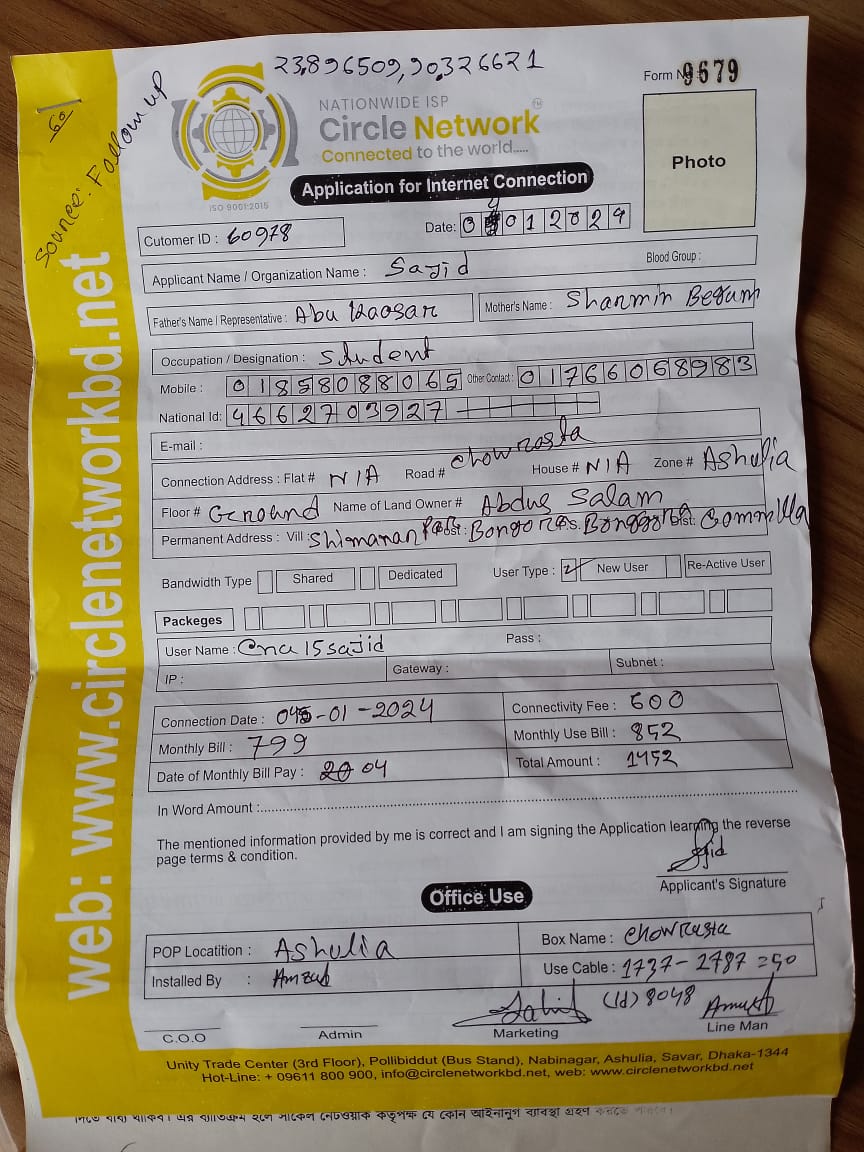 23.896509, 90.326621
Form No 9679
60
Source: Follow up
NATIONWIDE ISP
Circle Network
Connected to the world.....
ISO 9001:2015
Application for Internet Connection
Photo
Cutomer ID : 60978
Date: 04012024
Applicant Name / Organization Name : Sajid
Blood Group :
Father's Name / Representative : Abu Kaosar
Mother's Name : Sharmin Begum
Occupation / Designation : Student
Mobile : 01858088065 Other Contact : 01766068983
National Id: 4662703927
E-mail :
Connection Address : Flat # N/A Road # Chowrasta House # N/A Zone # Ashulia
Floor # Ground Name of Land Owner # Abdus Salam
Permanent Address : Vill : Post : P.S. Dist: Commilla
Bandwidth Type Shared Dedicated User Type : New User Re-Active User
Packeges
User Name : Cnc15sajid Pass :
IP : Gateway : Subnet :
Connection Date : 04-01-2024 Connectivity Fee : 600
Monthly Bill : 799 Monthly Use Bill : 852
Date of Monthly Bill Pay : 04 Total Amount : 1452
In Word Amount :
The mentioned information provided by me is correct and I am signing the Application learning the reverse
page terms & condition.
Applicant's Signature
Office Use
POP Locatition : Ashulia Box Name : Chowrasta
Installed By : Use Cable : 1737-1787=50
(Id) 8048
C.O.O Admin Marketing Line Man
Unity Trade Center (3rd Floor), Pollibiddut (Bus Stand), Nabinagar, Ashulia, Savar, Dhaka-1344
Hot-Line: + 09611 800 900, info@circlenetworkbd.net, web: www.circlenetworkbd.net
web: www.circlenetworkbd.net